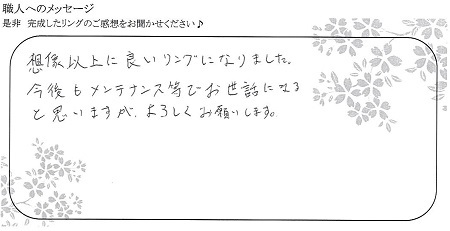 職人へのメッセージ
是非 完成したリングのご感想をお聞かせください♪
想像以上に良いリングになりました。
今後もメンテナンス等でお世話になる
と思いますが、よろしくお願いします。